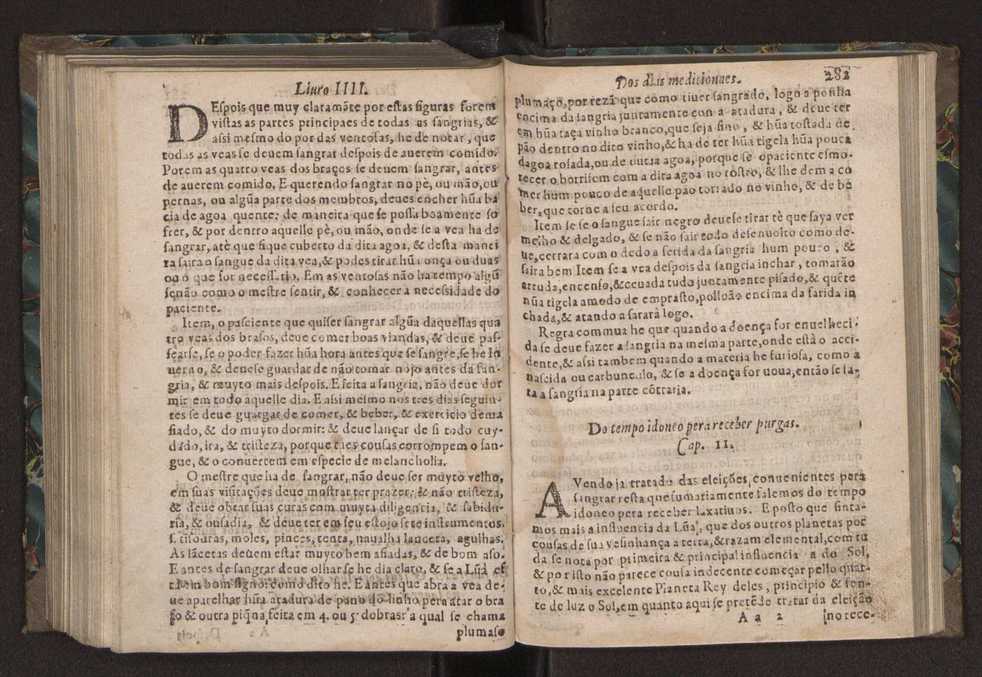 Liuro IIII.
DEspois que muy claramẽte por estas figuras forem
vistas as partes principaes de todas as sangrias, &
assi mesmo do por das ventosas, he de notar, que
todas as veas se deuem sangrar despois de auerem comido.
Porem as quatro veas dos braços se deuem sangrar, antes
de auerem comido. E querendo sangrar no pè, ou mão, ou
pernas, ou algũa parte dos membros, deues encher hũa ba
cia de agoa quente: de maneira que se possa boamente so
frer, & por dentro aquelle pè, ou mão, onde se a vea ha de
sangrar, atè que fique cuberto da dita agoa, & desta manei
ra saira o sangue da dita vea, & podes tirar hũa onça ou duas
ou o que for necessario. Em as ventosas não ha tempo algũ
senão como o mestre sentir, & conhecer a necessidade do
paciente.
Item, o pasciente que quiser sangrar algũa daquellas qua
tro veas dos brasos, deue comer boas viandas, & deue pas-
searse, se o poder fazer hũa hora antes que se sangre, se he lo
uerno, & deuese guardar de não tomar nojo antes da san-
gria, & muyto mais despois. E feita a sangria, não deue dor
mir em todo aquelle dia. E assi mesmo nos tres dias seguin-
tes se deue guargar de comer, & beber, & exercicio dema
siado, & do muyto dormir: & deue lançar de si todo cuy-
dado, ira, & tristeza, porque taes cousas corrompem o san-
gue, & o conuertem em especie de melancholia.
O mestre que ha de sangrar, não deue ser muyto velho,
em suas visitações deue mostrar ter prazer, & não tristeza,
& deue obrar suas curas com muyta diligencia, & sabidu-
ria, & ousadia, & deue ter em seu estojo sete instrumentos.
s. tisouras, moles, pinces, tenta, naualha lanceta, agulhas.
As lãcetas deuem estar muyto bem afiadas, & de bom aso.
E antes de sangrar deue olhar se he dia claro, & se a Lũa es
tà em bom signo: como dito he. E antes que abra a vea de-
ue aparelhar hũa atadura de pano do linho pera atar o bra
ço & outra piq̃na, feita em 4. ou 5. dobras: a qual se chama
plumaso
Dos dias medicionaes.
282
plumaço, por rezã que como tiuer sangrado, logo a ponha
encima da sangria juntamente con a atadura, & deue ter
em hũa taça vinho branco, que seja fino, & hũa tostada de
pão dentro no dito vinho, & ha de ter hũa tigela hũa pouca
dagoa rosada, ou de outra agoa, porque se o paciente esmo-
recer o borrifem com a dita agoa no rostro, & lhe dem a co
mer hum pouco de aquelle pão torrado no vinho, & de be
ber, que torne a seu acordo.
Item se se o sangue sair negro deuese tirar tè que saya ver
melho & delgado, & se não sair todo desenuolto como de-
ue, cerrara com o dedo a ferida da sangria hum pouco, &
saira bem Item se a vea despois da sangria inchar, tomarão
arruda, encenso, & ceuada tudo juntamente pisado, & quẽte
nũa tigela a modo de emprasto, polloão encima da farida in
chada, & atando a sararà logo.
Regra commua he que quando a doença for enuelheci-
da se deue fazer a sangria na mesma parte, onde està o acci-
dente, & assi tambem quando a materia he furiosa, como a
nascida ou carbunculo, & se a doença for noua, então se fa-
ra a sangria na parte cõtraria.
Do tempo idoneo pera receber purgas.
Cap. II.
AVendo ja tratado das eleições, conuenientes pera
sangrar resta que sumariamente falemos do tempo
idoneo pera receber laxatiuos. E posto que sinta-
mos mais a influencia da Lũa, que dos outros planetas por
cousas de sua vesinhança a terra, & razam elemental, com tu
da se nota por primeira & principal influencia a do Sol,
& por isto não parece cousa indecente começar pello quar-
to, & mais excelente Planeta Rey deles, principio & fon-
te de luz o Sol, em quanto aqui se pretẽde tratar da eleição
A a 2
no rece-